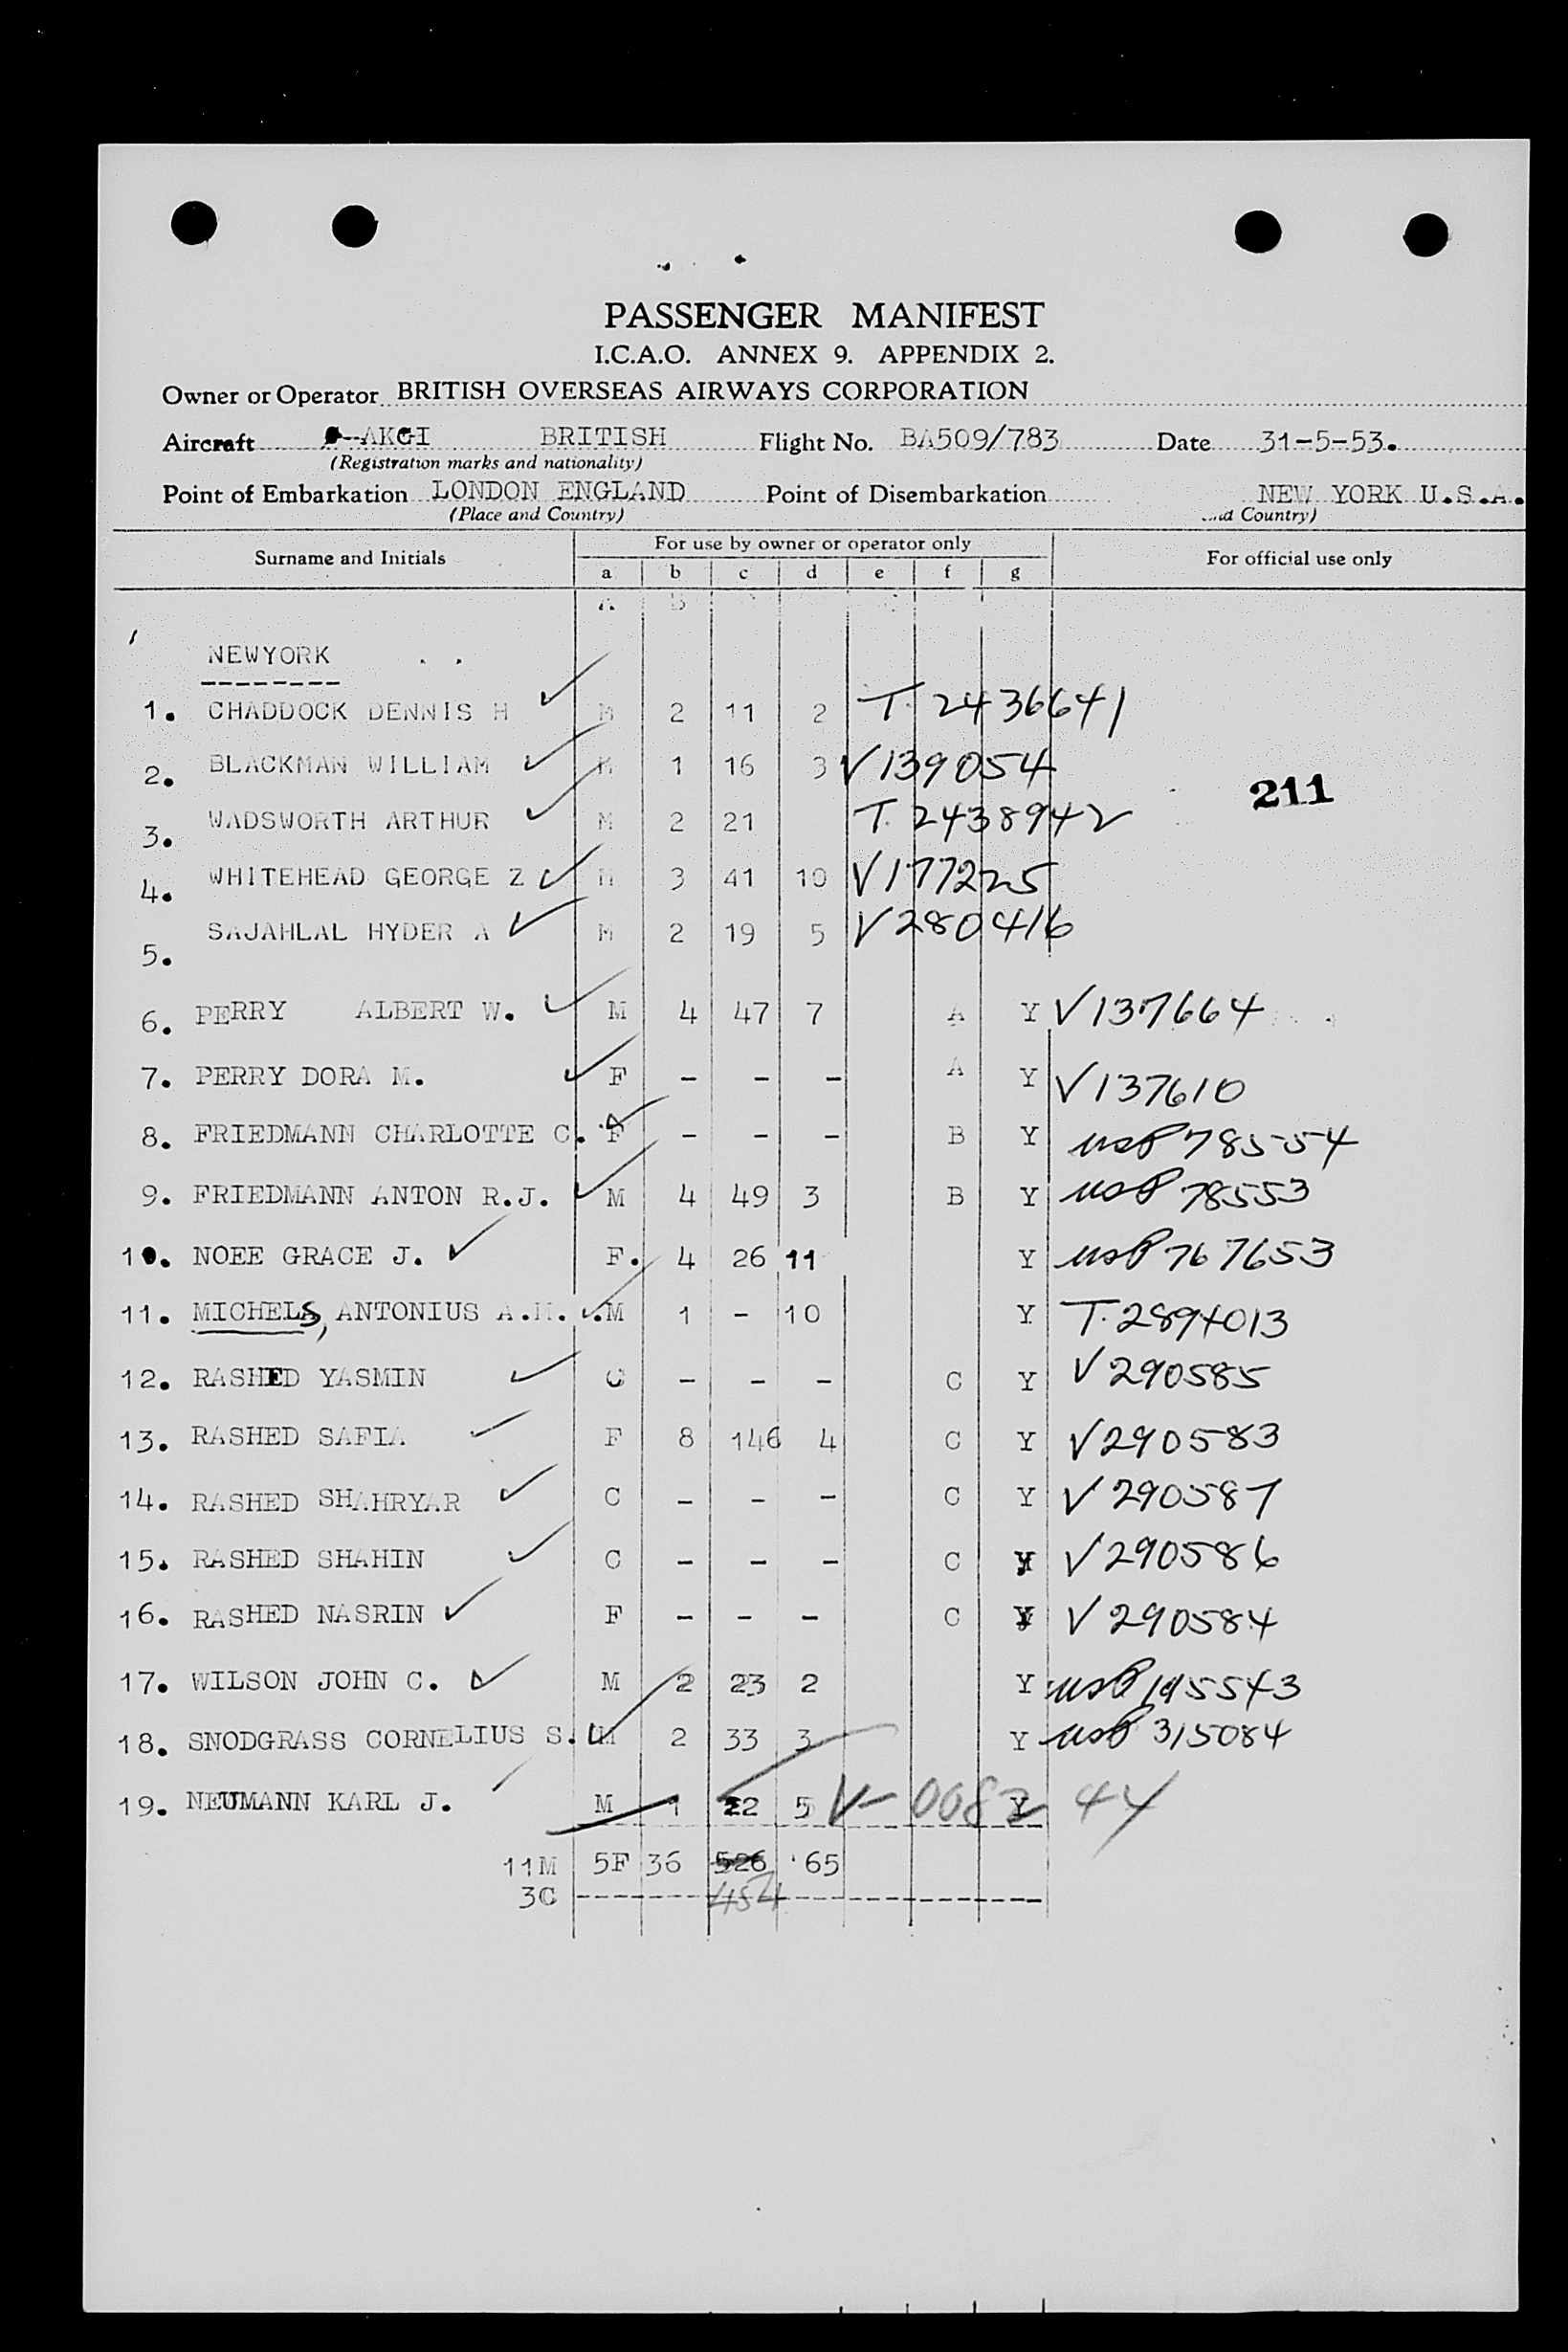 PASSENGER MANIFEST
I.C.A.O. ANNEX 9. APPENDIX 2.
Owner or Operator BRITISH OVERSEAS AIRWAYS CORPORATION
Aircraft -AKGI BRITISH Flight No. BA509/783 Date 31-5-53.
(Registration marks and nationality)
Point of Embarkation LONDON ENGLAND Point of Disembarkation NEW YORK U.S.A.
(Place and Country) Country)
Surname and Initials For use by owner or operator only For official use only
a b c d e f g
A B
NEWYORK
1. CHADDOCK DENNIS H M 2 11 2 T. 2436641
2. BLACKMAN WILLIAM M 1 16 3 V139054
211
3. WADSWORTH ARTHUR M 2 21 T. 2438942
4. WHITEHEAD GEORGE Z M 3 41 10 V177225
5. SAJAHLAL HYDER A M 2 19 5 V280416
6. PERRY ALBERT W. M 4 47 7 A Y V137664
7. PERRY DORA M. F - - - A Y V137610
8. FRIEDMANN CHARLOTTE C. F - - - B Y USP 78554
9. FRIEDMANN ANTON R.J. M 4 49 3 B Y USP 78553
10. NOEE GRACE J. F. 4 26 11 Y USP 767653
11. MICHELS, ANTONIUS A.H. M 1 - 10 Y T. 2894013
12. RASHED YASMIN C - - - C Y V290585
13. RASHED SAFIA F 8 146 4 C Y V290583
14. RASHED SHAHRYAR C - - - C Y V290587
15. RASHED SHAHIN C - - - C Y V290586
16. RASHED NASRIN F - - - C Y V290584
17. WILSON JOHN C. M 2 23 2 Y USP
18. SNODGRASS CORNELIUS S. M 2 33 3 Y USP 315084
19. NEUMANN KARL J. M 1 22 5 Y
11M 5F 36 526 65
3C 454